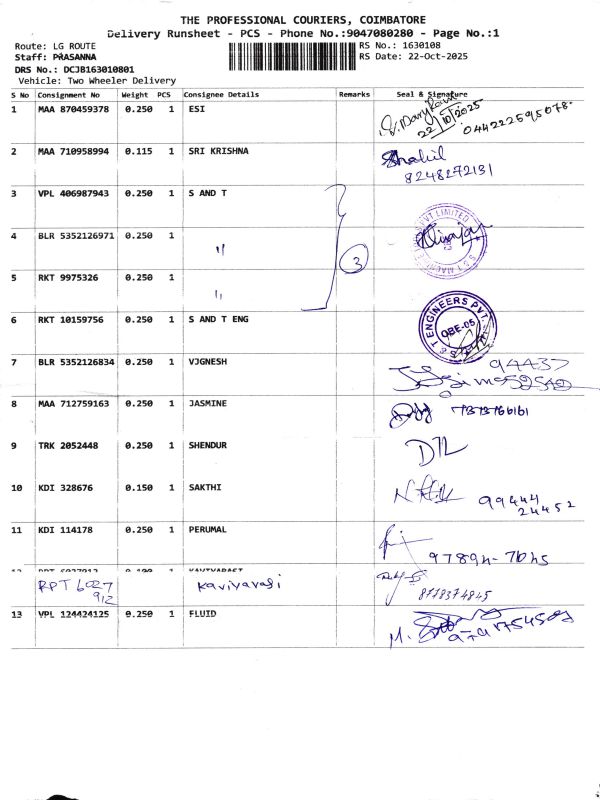 THE PROFESSIONAL COURIERS, COIMBATORE
Delivery Runsheet - PCS - Phone No.:9047080280 - Page No.:1
Route: LG ROUTE RS No.: 1630108
Staff: PRASANNA RS Date: 22-Oct-2025
DRS No.: DCJB163010801
Vehicle: Two Wheeler Delivery
S No Consignment No Weight PCS Consignee Details Remarks Seal & Signature
1 MAA 870459378 0.250 1 ESI
22/10/2025 044222595078.
2 MAA 710958994 0.115 1 SRI KRISHNA
8248272131
3 VPL 406987943 0.250 1 S AND T
4 BLR 5352126971 0.250 1
" 3
5 RKT 9975326 0.250 1
"
6 RKT 10159756 0.250 1 S AND T ENG
T ENGINEERS PVT.
OBE-05
7 BLR 5352126834 0.250 1 VJGNESH
94437
8 MAA 712759163 0.250 1 JASMINE
9 TRK 2052448 0.250 1 SHENDUR
10 KDI 328676 0.150 1 SAKTHI
99444
24452
11 KDI 114178 0.250 1 PERUMAL
RPT 6027
912 Kaviyarasi
8778374845
13 VPL 124424125 0.250 1 FLUID